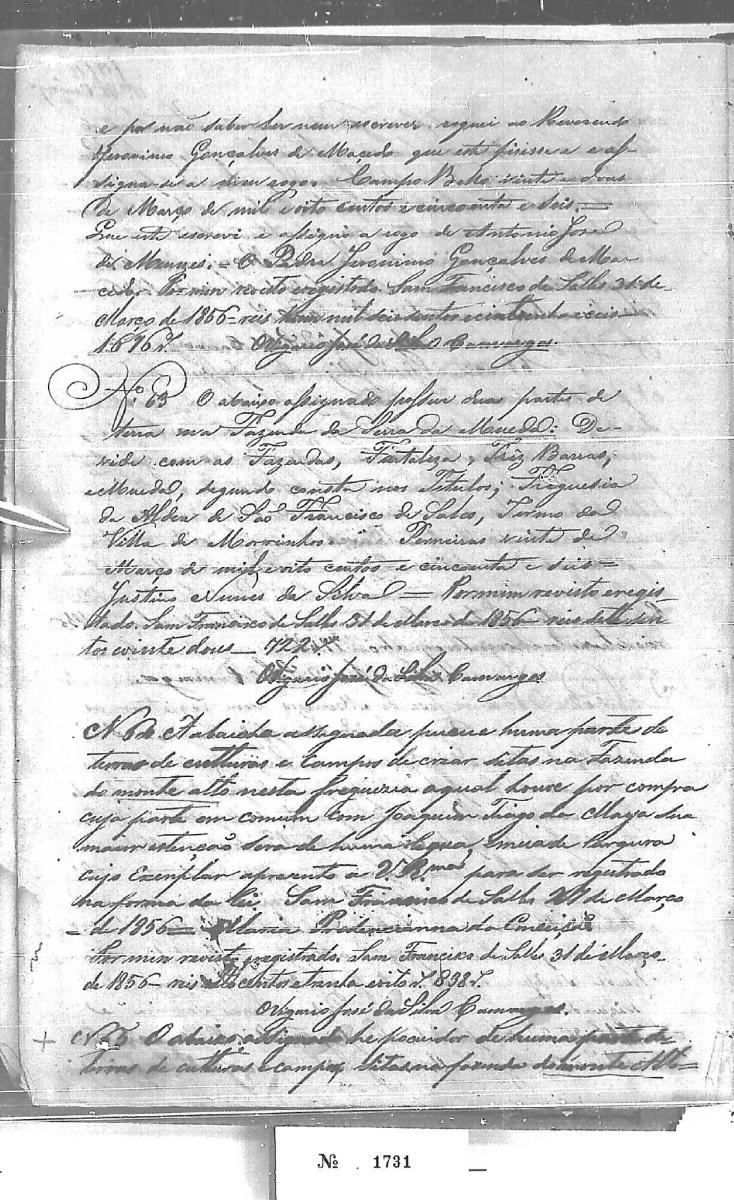 e por não saber ler nem escrever roguei ao Reverendo
Jeronimo Gonçalves de Macedo que este fisisse e as
signa-se a meu rogo. Campo Bello vinte e dous
de Março de mil e oito centos e cincoenta e seis. =
Que este escrevi e assignei a rogo de Antonio José
de Menezes. = O Padre Jeronimo Gonçalves de Ma-
cedo. Por mim revisto e registrado. Sam Francisco de Salles 31 de
Março de 1856 – reis hum mil seis centos e
1.696 r. O Vigario José da Silva Camargos.
N.º 63 O abaixo assignado possue duas partes de
terra na Fazenda da Serra da Moeda: De-
vide com as Fazendas, Furtaleza, Trez Barras,
e Moeda, segundo consta nos Titulos; Freguesia
da Aldea de São Francisco de Sales, Termo da
Villa de Morrinhos – Perneiras vinte de
Março de mil e oito centos e cincoenta e seis =
Justino Nunes da Silva — Por mim revisto e regis
trado. Sam Francisco de Salles 31 de Março de 1856 – reis sette cen
tos e vinte dous — 722 r.
O Vigario José da Silva Camargos
N 64 A abaicha assignada pucue huma parte de
terras de culturas e campos de criar sitas na Fazenda
do monte alto nesta freguezia a qual houve por compra
cuja parte em comum com Joaquim Tiago da Maya sua
maior estenção sera de huma legua, e meia de largura
cujo Exemplar aprezento a V. R.ma para ser registrado
na forma da lei. Sam Francisco de Salles 21 de Março
de 1856 — Maria Prudencianna da Conceição
Por mim revisto e registrado. Sam Francisco de Salles 31 de Março
de 1856 – reis oito centos e trinta e oito r. 838 r.
O Vigario José da Silva Camargos.
O abaixo assignado he pocuidor de huma parte de
terras de culturas e campos, sitas na fazenda do monte Alto
Nº 1731